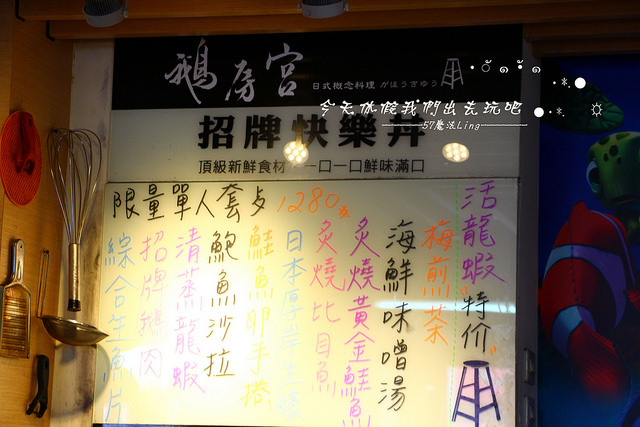 鵝房宮
日式概念料理 がほうきゅう
今天休假我們出去玩吧
57魔法Ling
招牌快樂丼
頂級新鮮食材 一口一口鮮味滿口
限量單人套 1280
活龍蝦"特价"
梅煎茶
海鮮味噌湯
炙燒黃金鮭魚
炙燒比目魚
日本厚岸生蠔
鮭魚卵手捲
鮑魚沙拉
清蒸龍蝦
招牌鵝肉
綜合生魚片